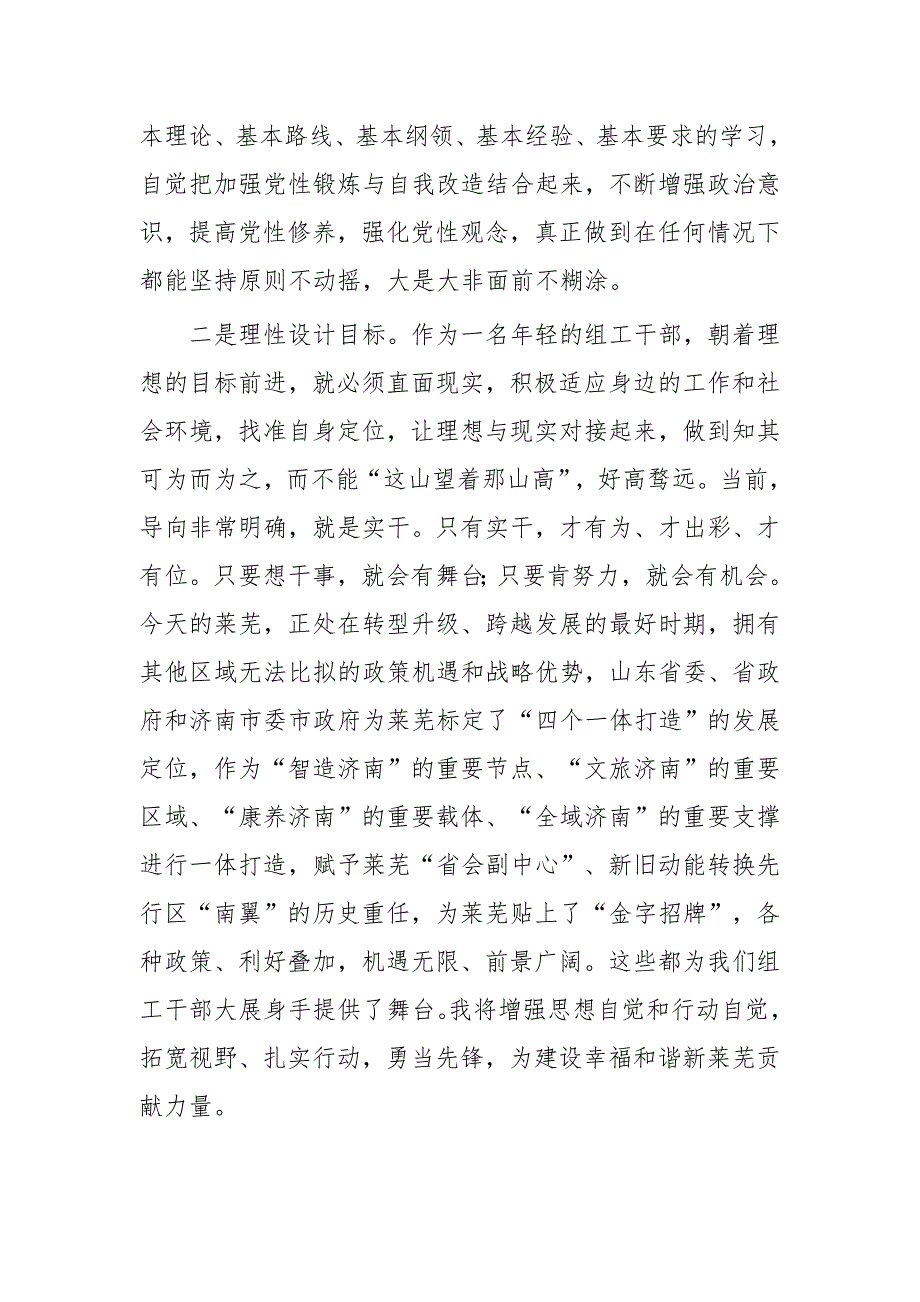 本理论、基本路线、基本纲领、基本经验、基本要求的学习，
自觉把加强党性锻炼与自我改造结合起来，不断增强政治意
识，提高党性修养，强化党性观念，真正做到在任何情况下
都能坚持原则不动摇，大是大非面前不糊涂。
二是理性设计目标。作为一名年轻的组工干部，朝着理
想的目标前进，就必须直面现实，积极适应身边的工作和社
会环境，找准自身定位，让理想与现实对接起来，做到知其
可为而为之，而不能“这山望着那山高”，好高骛远。当前，
导向非常明确，就是实干。只有实干，才有为、才出彩、才
有位。只要想干事，就会有舞台；只要肯努力，就会有机会。
今天的莱芜，正处在转型升级、跨越发展的最好时期，拥有
其他区域无法比拟的政策机遇和战略优势，山东省委、省政
府和济南市委市政府为莱芜标定了“四个一体打造”的发展
定位，作为“智造济南”的重要节点、“文旅济南”的重要
区域、“康养济南”的重要载体、“全域济南”的重要支撑
进行一体打造，赋予莱芜“省会副中心”、新旧动能转换先
行区“南翼”的历史重任，为莱芜贴上了“金字招牌”，各
种政策、利好叠加，机遇无限、前景广阔。这些都为我们组
工干部大展身手提供了舞台。我将增强思想自觉和行动自觉，
拓宽视野、扎实行动，勇当先锋，为建设幸福和谐新莱芜贡
献力量。